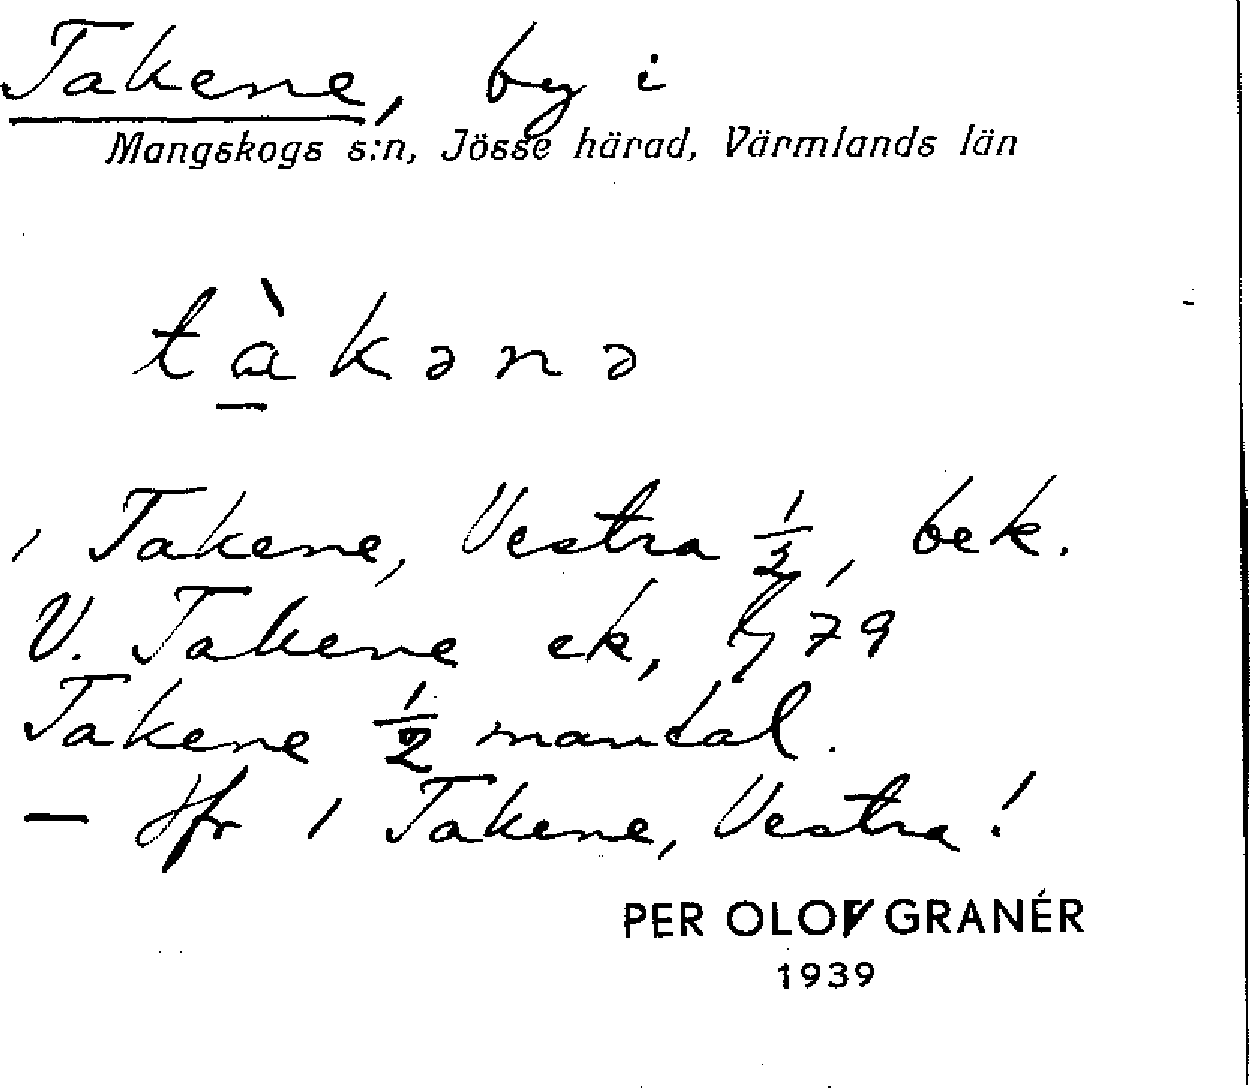 Takene, by i
Mangskogs s:n, Jösse härad, Värmlands län
tàkənə
1 Takene, Vestra 1/2, bek.
V. Takene ek, 79
Takene 1/2 mantal.
— Jfr 1 Takene, Vestra!
PER OLOV GRANÉR
1939